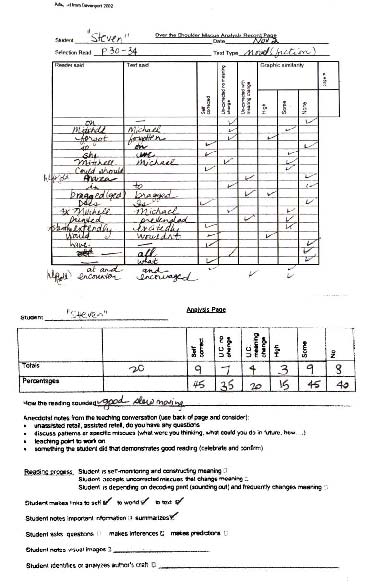 from Davenport 2002
Over the Shoulder Miscue Analysis Record Page
Student "Steven" Date Nov 2
Selection Read P 30-34 Text Type novel (fiction)
Reader said Text said Graphic similarity
Self corrected Uncorrected no meaning change Uncorrected with meaning change High Some None
on —
Mitchell Michael
forgot forgotten
on
she
Mitchell Michael
Could should
in to
bragged(ged) bragged
Dad's
3x Michele Michael
pretended
excitedly
would wouldn't
have —
— all
— what
at and and
encourage encouraged
Analysis Page
Student: "Steven"
Self correct U.C. no change U.C. meaning change High Some No
Totals 20 9 7 4 3 9 8
Percentages 45 35 20 15 45 40
How the reading sounded: good slow moving
Anecdotal notes from the teaching conversation (use back of page and consider):
• unassisted retell, assisted retell, do you have any questions
• discuss patterns or specific miscues (what were you thinking, what could you do in future, how....)
• teaching point to work on
• something the student did that demonstrates good reading (celebrate and confirm)
Reading process: Student is self-monitoring and constructing meaning □
Student accepts uncorrected miscues that change meaning □
Student is depending on decoding print (sounding out) and frequently changes meaning □
Student makes links to self ☑ to world ☑ to text ☑
Student notes important information □ summarizes ☑
Student asks questions □ makes inferences □ makes predictions □
Student notes visual images □
Student identifies or analyzes author's craft □